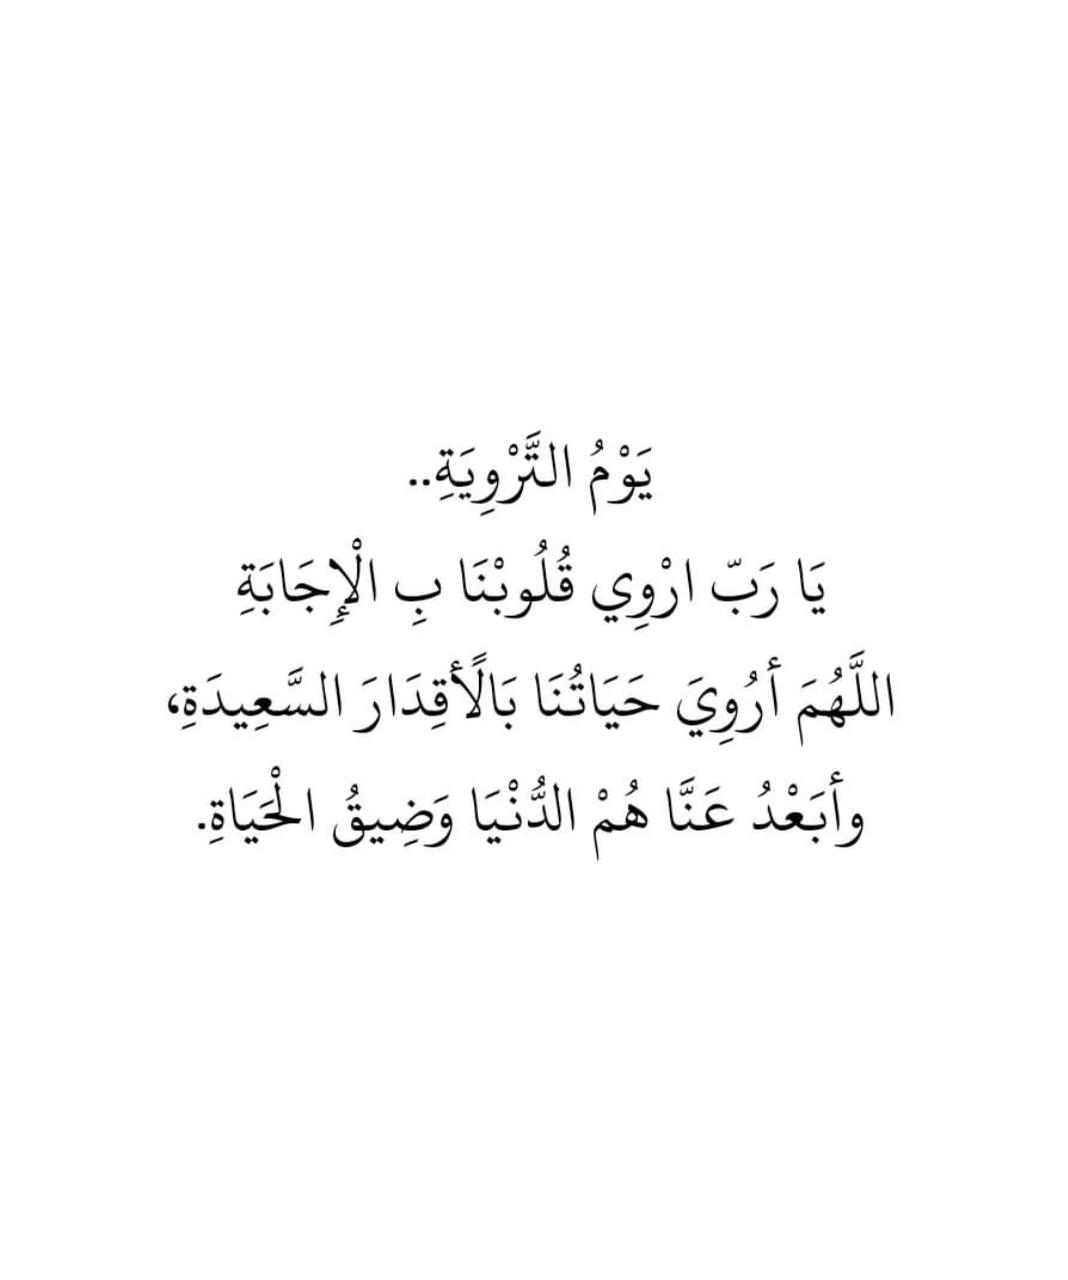 يَوْمُ التَّرْوِيَةِ..
يَا رَبّ ارْوِي قُلُوبْنَا بِ الْإِجَابَةِ
اللَّهُمَ أرُوِيَ حَيَاتُنَا بَالًأقِدَارَ السَّعِيدَةِ،
وأبَعْدُ عَنَّا هُمْ الدُّنْيَا وَضِيقُ الْحَيَاةِ.